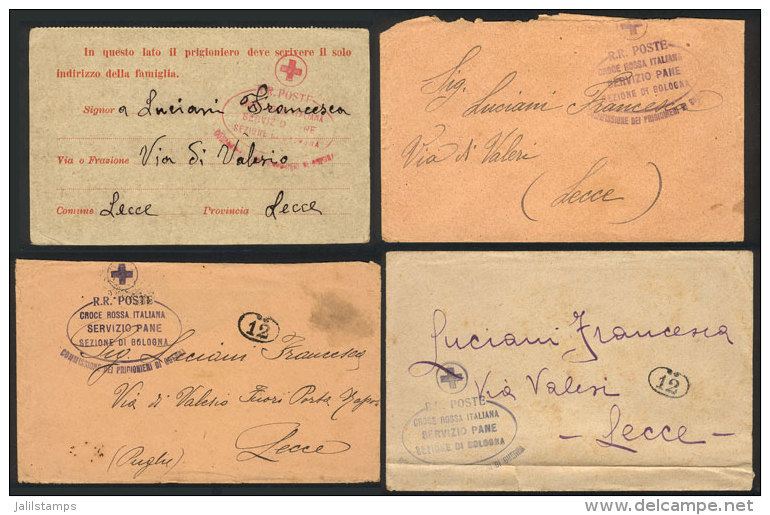 In questo lato il prigioniero deve scrivere il solo
indirizzo della famiglia.
R.R. POSTE
Signor a Luciani Francesca
SERVIZIO PANE
Via o Frazione Via di Valesio
Comune Lecce Provincia Lecce
R.R. POSTE
CROCE ROSSA ITALIANA
SERVIZIO PANE
SEZIONE DI BOLOGNA
COMMISSIONE DEI PRIGIONIERI DI
Sig. Luciani Francesca
Via di Valeri
(Lecce)
R.R. POSTE
CROCE ROSSA ITALIANA
SERVIZIO PANE
SEZIONE DI BOLOGNA
COMMISSIONE DEI PRIGIONIERI DI GUERRA
12
Sig. Luciani Francesca
Via di Valesio Fuori Porta Napoli
Lecce
(Puglie)
Luciani Francesca
Via Valesi
12
- Lecce -
R.R. POSTE
CROCE ROSSA ITALIANA
SERVIZIO PANE
SEZIONE DI BOLOGNA
DI GUERRA
jalilstamps
delcampe.net